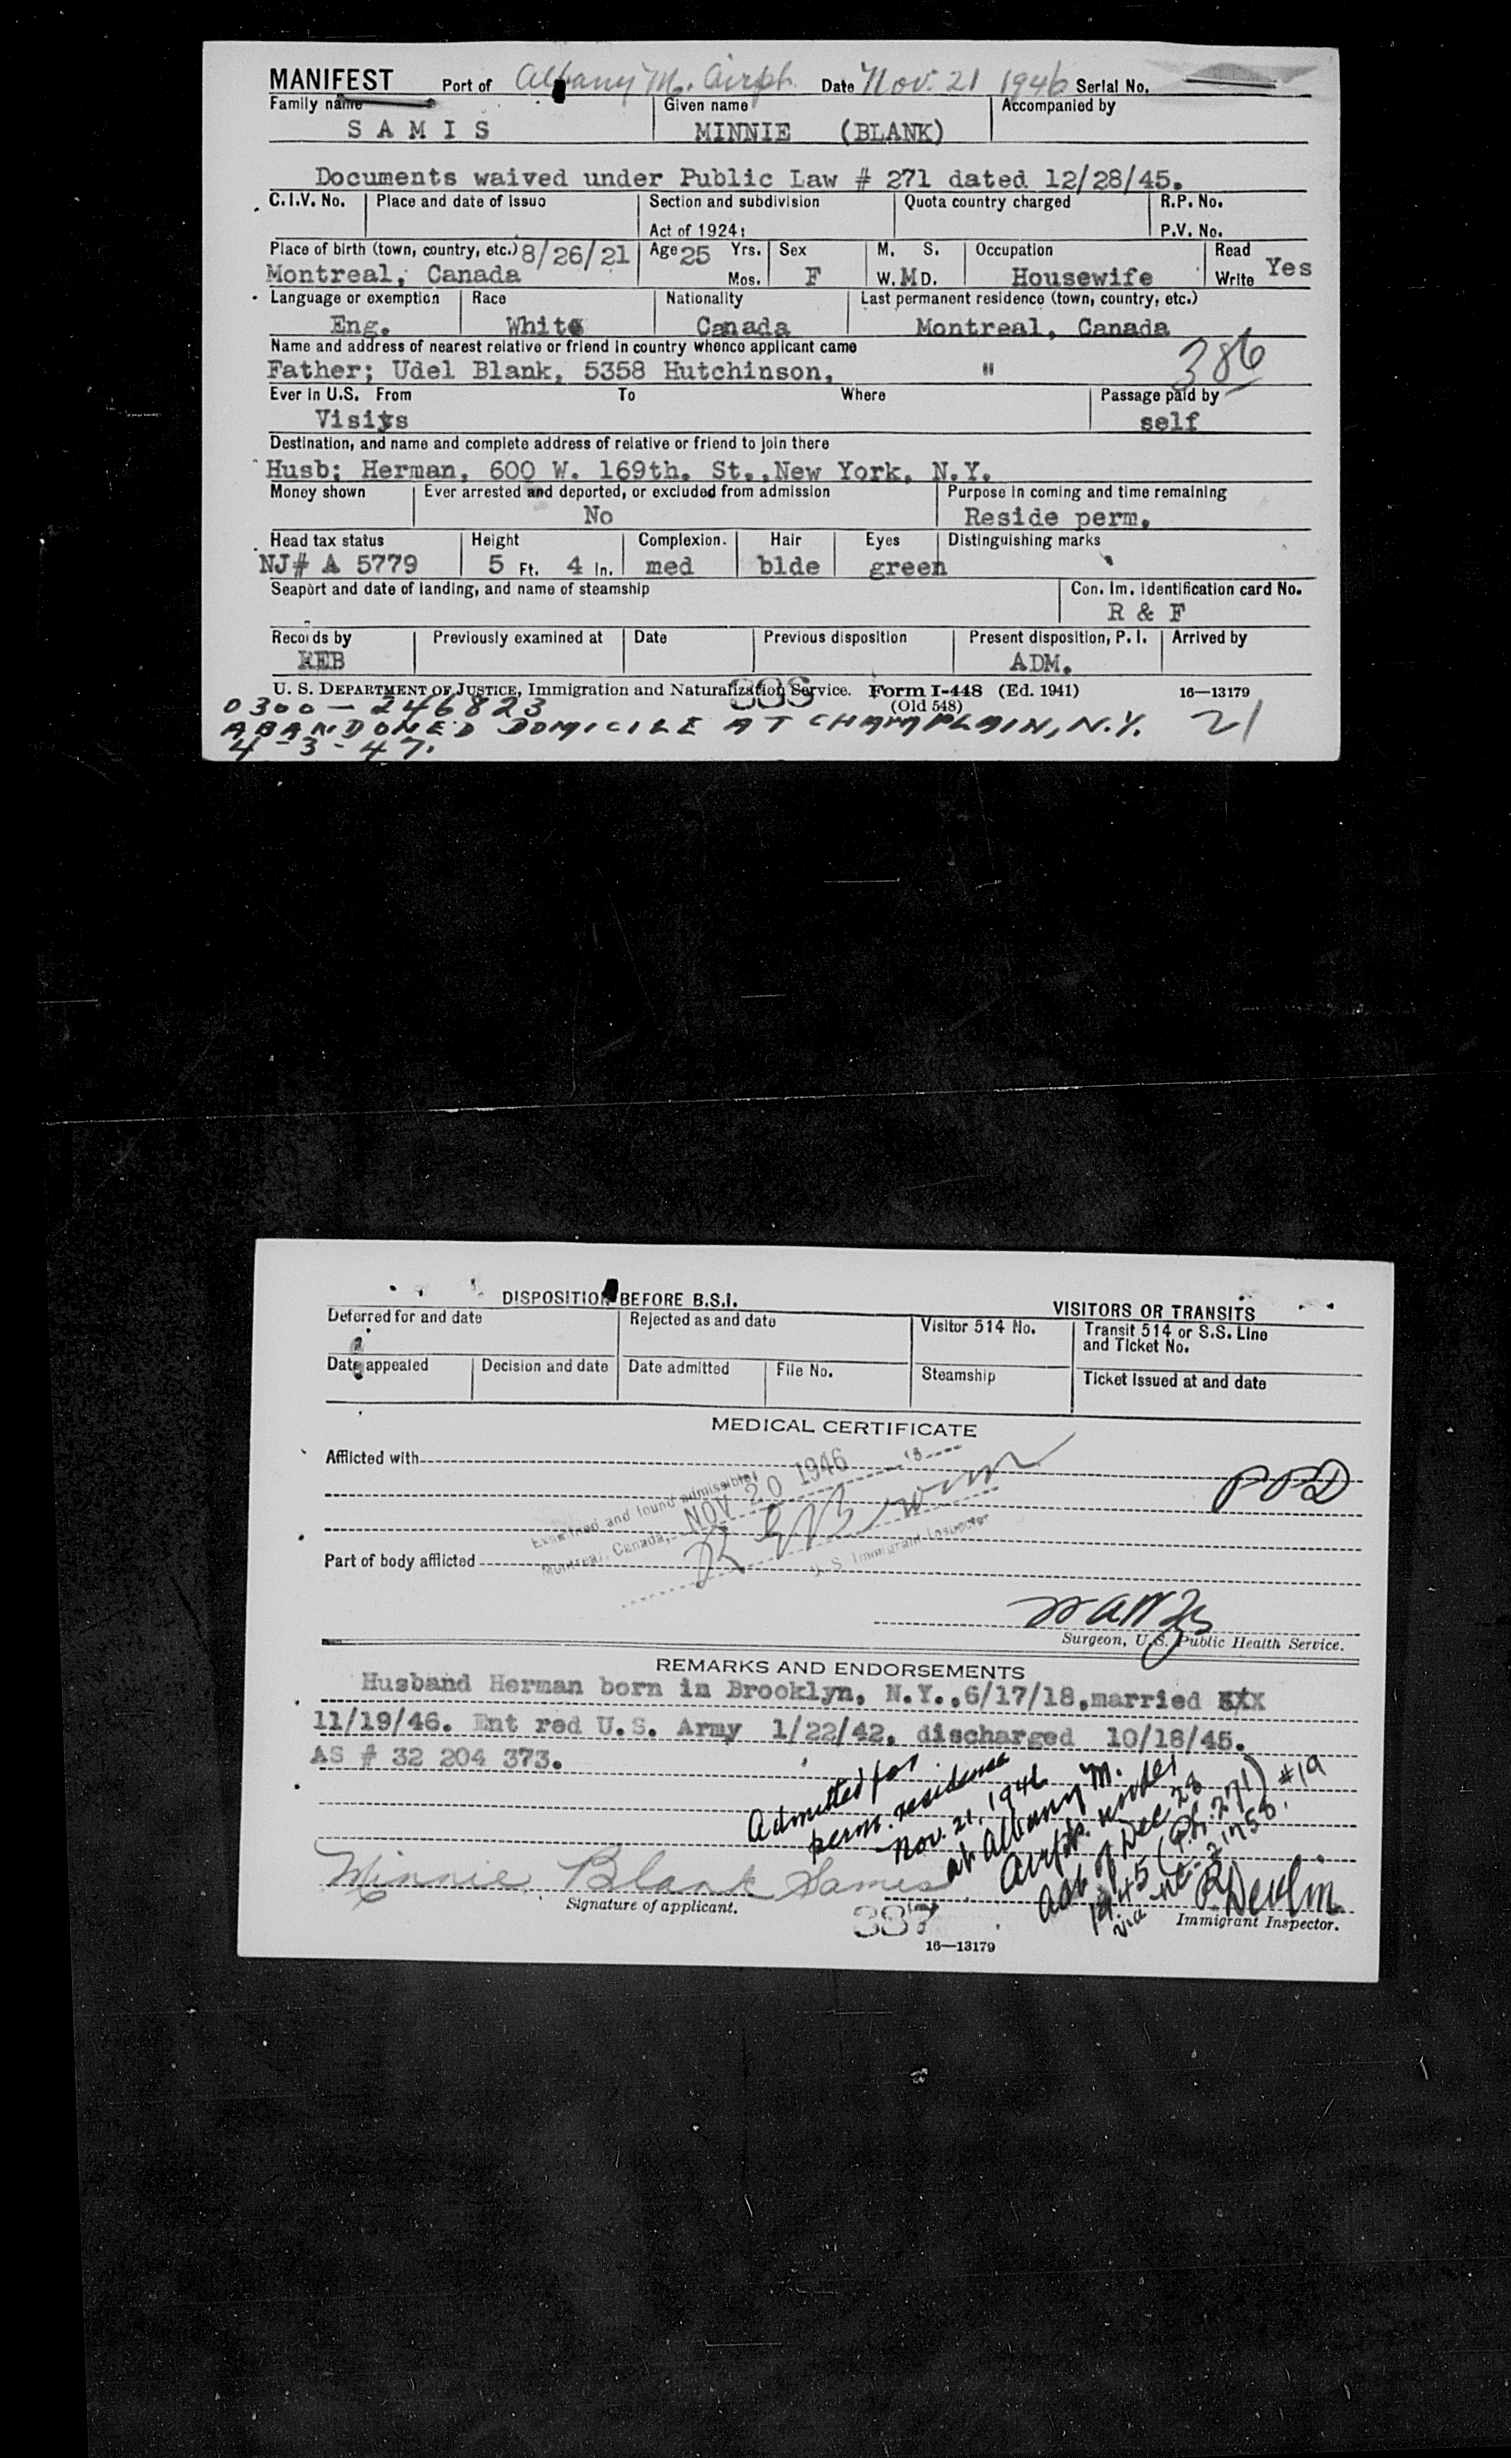 MANIFEST Port of Albany M. Airpt. Date Nov. 21 1946 Serial No.
Family name Given name Accompanied by
S A M I S MINNIE (BLANK)
Documents waived under Public Law # 271 dated 12/28/45.
C.I.V. No. Place and date of issue Section and subdivision Quota country charged R.P. No.
Act of 1924: P.V. No.
Place of birth (town, country, etc.) 8/26/21 Age 25 Yrs. Sex M. S. Occupation Read
Montreal, Canada Mos. F W. M D. Housewife Write Yes
Language or exemption Race Nationality Last permanent residence (town, country, etc.)
Eng. White Canada Montreal, Canada
Name and address of nearest relative or friend in country whence applicant came 386
Father; Udel Blank, 5358 Hutchinson, "
Ever in U.S. From To Where Passage paid by
Visits self
Destination, and name and complete address of relative or friend to join there
Husb; Herman, 600 W. 169th. St.,New York, N.Y.
Money shown Ever arrested and deported, or excluded from admission Purpose in coming and time remaining
No Reside perm.
Head tax status Height Complexion. Hair Eyes Distinguishing marks
NJ# A 5779 5 Ft. 4 In. med blde green
Seaport and date of landing, and name of steamship Con. Im. Identification card No.
R & F
Records by Previously examined at Date Previous disposition Present disposition, P. I. Arrived by
REB ADM.
U. S. DEPARTMENT OF JUSTICE, Immigration and Naturalization Service. Form I-448 (Ed. 1941) 16—13179
(Old 548)
0300-246823
ABANDONED DOMICILE AT CHAMPLAIN, N.Y. 21
4-3-47.
DISPOSITION BEFORE B.S.I. VISITORS OR TRANSITS
Deferred for and date Rejected as and date Visitor 514 No. Transit 514 or S.S. Line
and Ticket No.
Date appealed Decision and date Date admitted File No. Steamship Ticket issued at and date
MEDICAL CERTIFICATE
Afflicted with
Examined and found admissible
Montreal, Canada, NOV 20 1946
U. S. Immigrant Inspector
Part of body afflicted
Surgeon, U.S. Public Health Service.
REMARKS AND ENDORSEMENTS
Husband Herman born in Brooklyn, N.Y.,6/17/18,married
11/19/46. Ent red U.S. Army 1/22/42, discharged 10/18/45.
AS # 32 204 373.
Admitted for
perm. residence
Nov. 21, 1946
at Albany M.
Airpt. under
Act of Dec 28
1945 (P.L. 271) #19
via
Minnie Blank Samis R Devlin
Signature of applicant. Immigrant Inspector.
16—13179